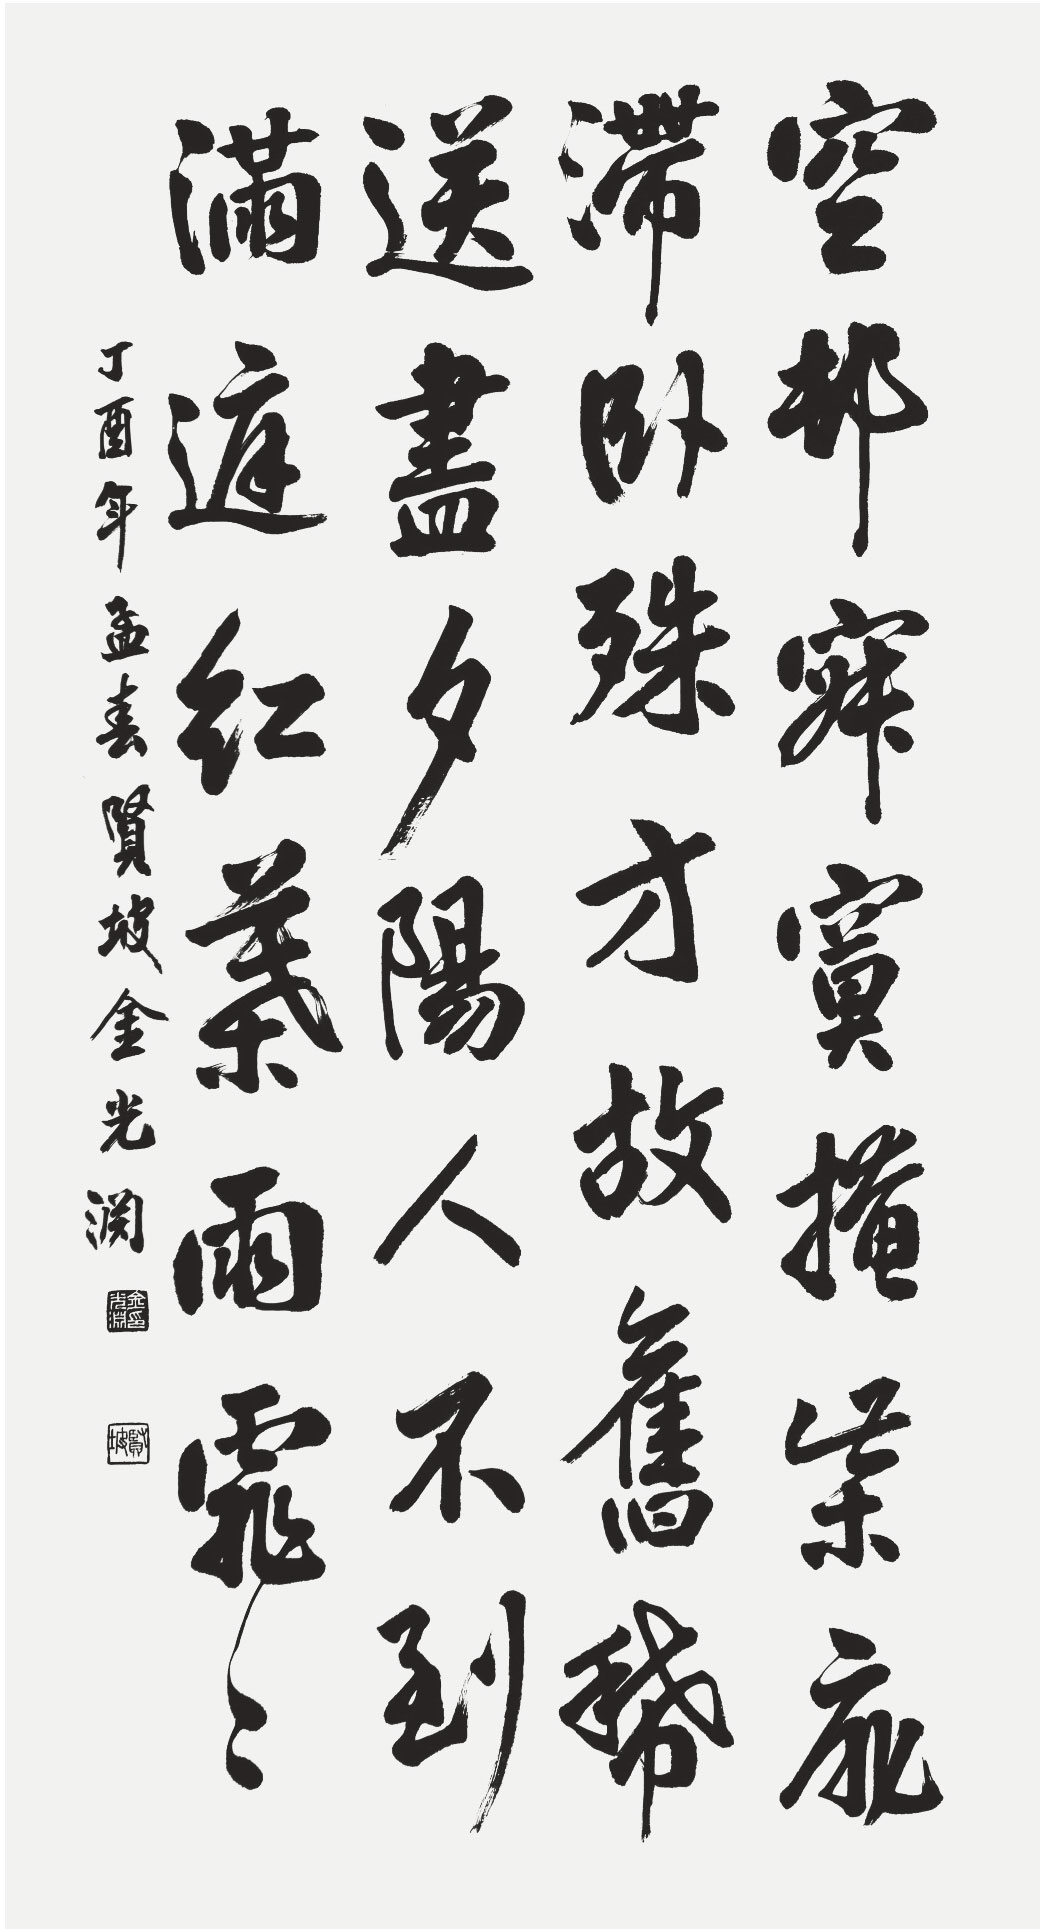 空邨寂寞掩柴扉
滯卧殊才故舊稀
送盡夕陽人不到
滿庭紅葉雨霏〻
丁酉年孟春賢坡金光渕
金光淵印
賢坡